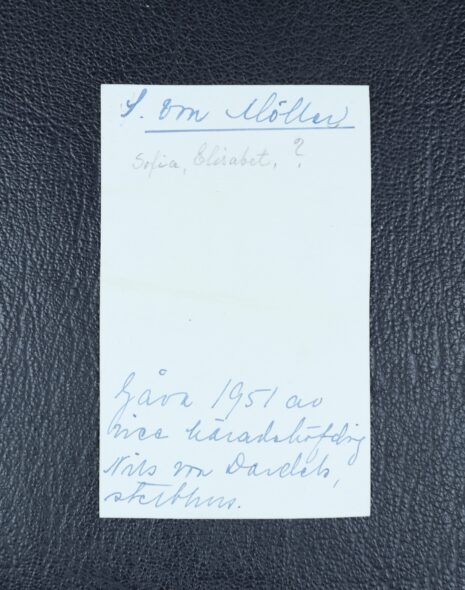 S. von Möller
Sofia, Elisabet, ?
Gåva 1951 av
vice häradshöfdig
Nils von Dardels,
sterbhus.